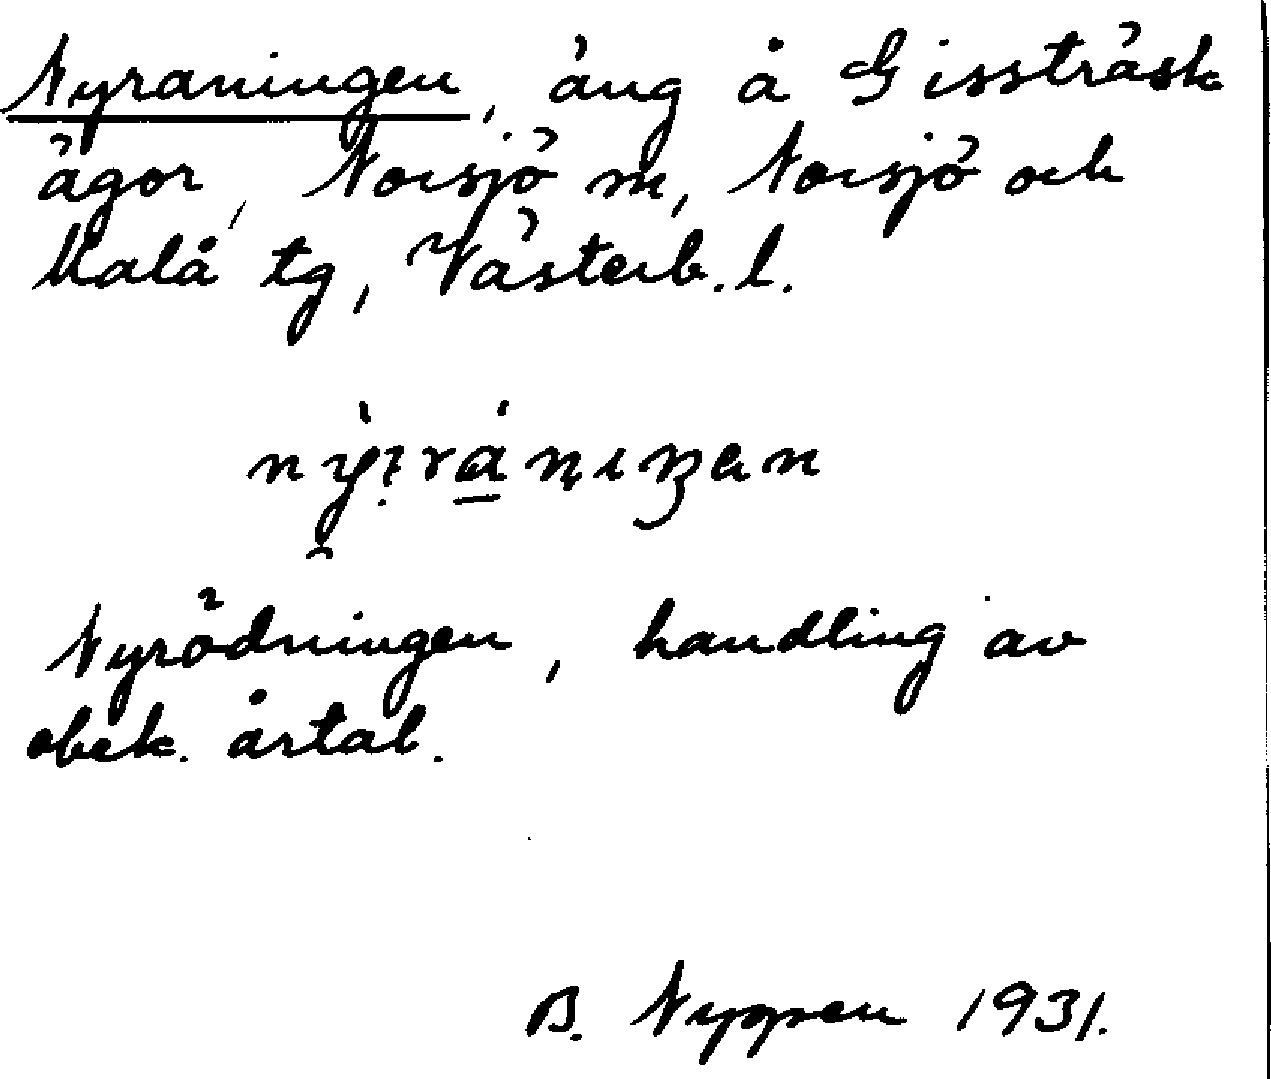 Nyraningen, äng å Gissträsk
ägor, Norsjö m, Norsjö och
Malå tg, Västerb. l.
Nyrödningen, handling av
obek. årtal.
B. Nygren 1931.